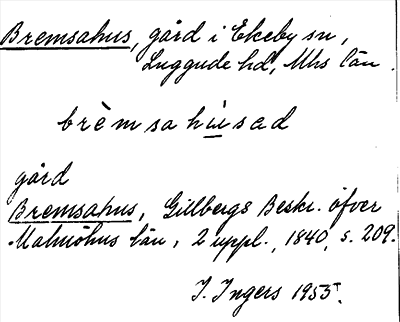 Bremsahus, gård i Ekeby sn,
Luggude hd, Mhs län.
brèmsahúsad
gård
Bremsahus, Gillbergs Beskr. öfver
Malmöhus län, 2 uppl., 1840, s. 209.
I. Ingers 1953.